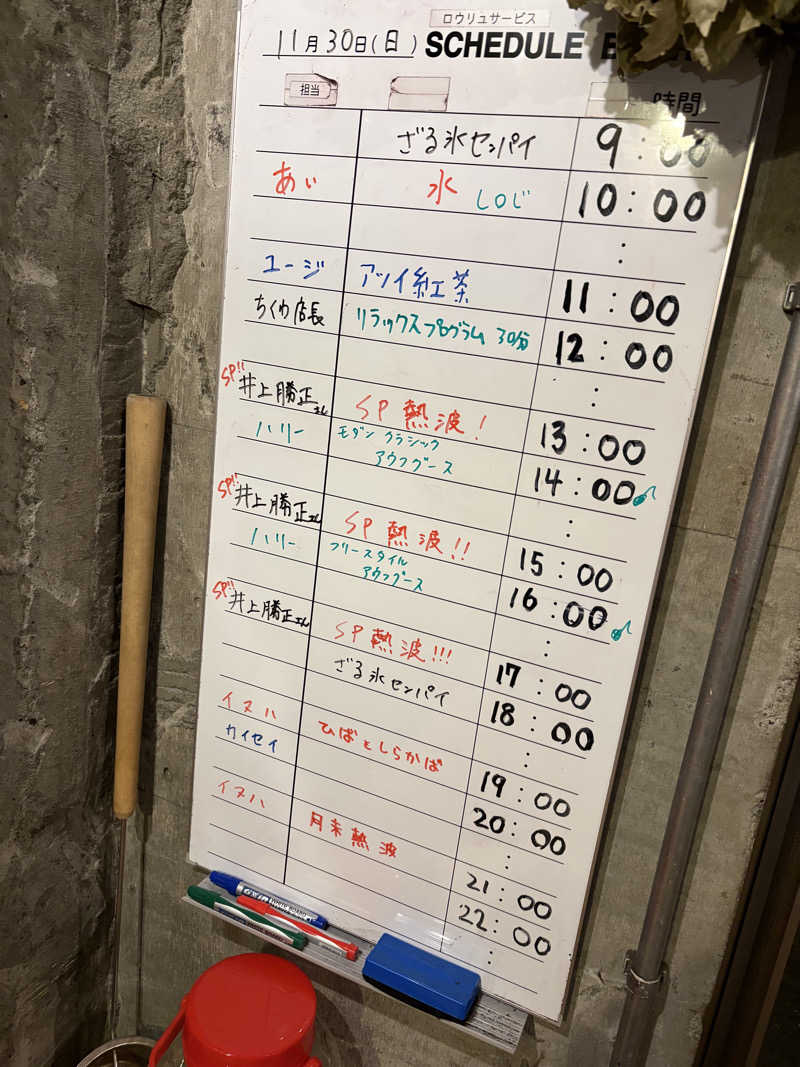 ロウリュサービス
11月30日(日) SCHEDULE
担当
時間
ざる氷センパイ 9:00
あい 氷 しOじ 10:00
:
ユージ アツイ紅茶 11:00
ちくわ店長 リラックスプログラム 30分 12:00
:
SP!! 井上勝正さん SP熱波! 13:00
ハリー モダンクラシック
アウフグース 14:00
:
SP!! 井上勝正さん SP熱波!! 15:00
ハリー フリースタイル
アウフグース 16:00
:
SP!! 井上勝正さん SP熱波!!! 17:00
ざる氷センパイ 18:00
:
イヌハ ひばとしらかば 19:00
カイセイ 20:00
:
イヌハ 月末熱波 21:00
22:00
: